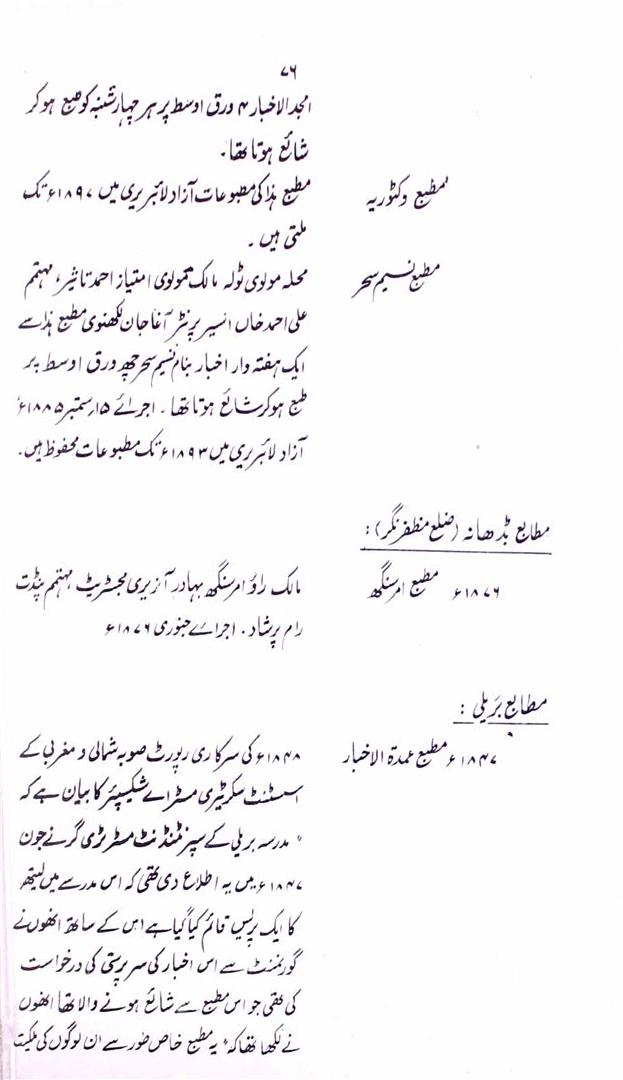 ۷۶
امجد الاخبار ۴ ورق اوسط پر ہر چہار شنبہ کو طبع ہو کر
شائع ہوتا تھا۔
مطبع وکٹوریہ
مطبع ہذا کی مطبوعات آزاد لائبریری میں ۱۸۹۷ء تک
ملتی ہیں۔
مطبع نسیم سحر
محلہ مولوی ٹولہ مالک مولوی امتیاز احمد تاثیر، مہتمم
علی احمد خاں اسیر پرنٹر آغا جان لکھنوی مطبع ہذا سے
ایک ہفتہ وار اخبار بنام نسیم سحر چھ ورق اوسط پر
طبع ہو کر شائع ہوتا تھا۔ اجرائے ۱۵ ستمبر ۱۸۸۵ء
آزاد لائبریری میں ۱۸۹۳ء تک مطبوعات محفوظ ہیں۔
مطابع بڈھانہ (ضلع مظفر نگر):
۱۸۷۶ء مطبع امر سنگھ
مالک راؤ امر سنگھ بہادر آنریری مجسٹریٹ مہتمم پنڈت
رام پرشاد۔ اجرائے جنوری ۱۸۷۶ء
مطابع بریلی:
۱۸۴۷ء مطبع عمدۃ الاخبار
۱۸۴۸ء کی سرکاری رپورٹ صوبہ شمالی و مغربی کے
اسسٹنٹ سکریٹری مسٹر اے شکیسپئر کا بیان ہے کہ
"مدرسہ بریلی کے سپرنٹنڈنٹ مسٹر ٹری گر نے جون
۱۸۴۷ء میں یہ اطلاع دی تھی کہ اس مدرسے میں لیتھو
کا ایک پریس قائم کیا گیا ہے اس کے ساتھ انھوں نے
گورنمنٹ سے اس اخبار کی سرپرستی کی درخواست
کی تھی جو اس مطبع سے شائع ہونے والا تھا انھوں
نے لکھا تھا کہ "یہ مطبع خاص طور سے ان لوگوں کی ملکیت